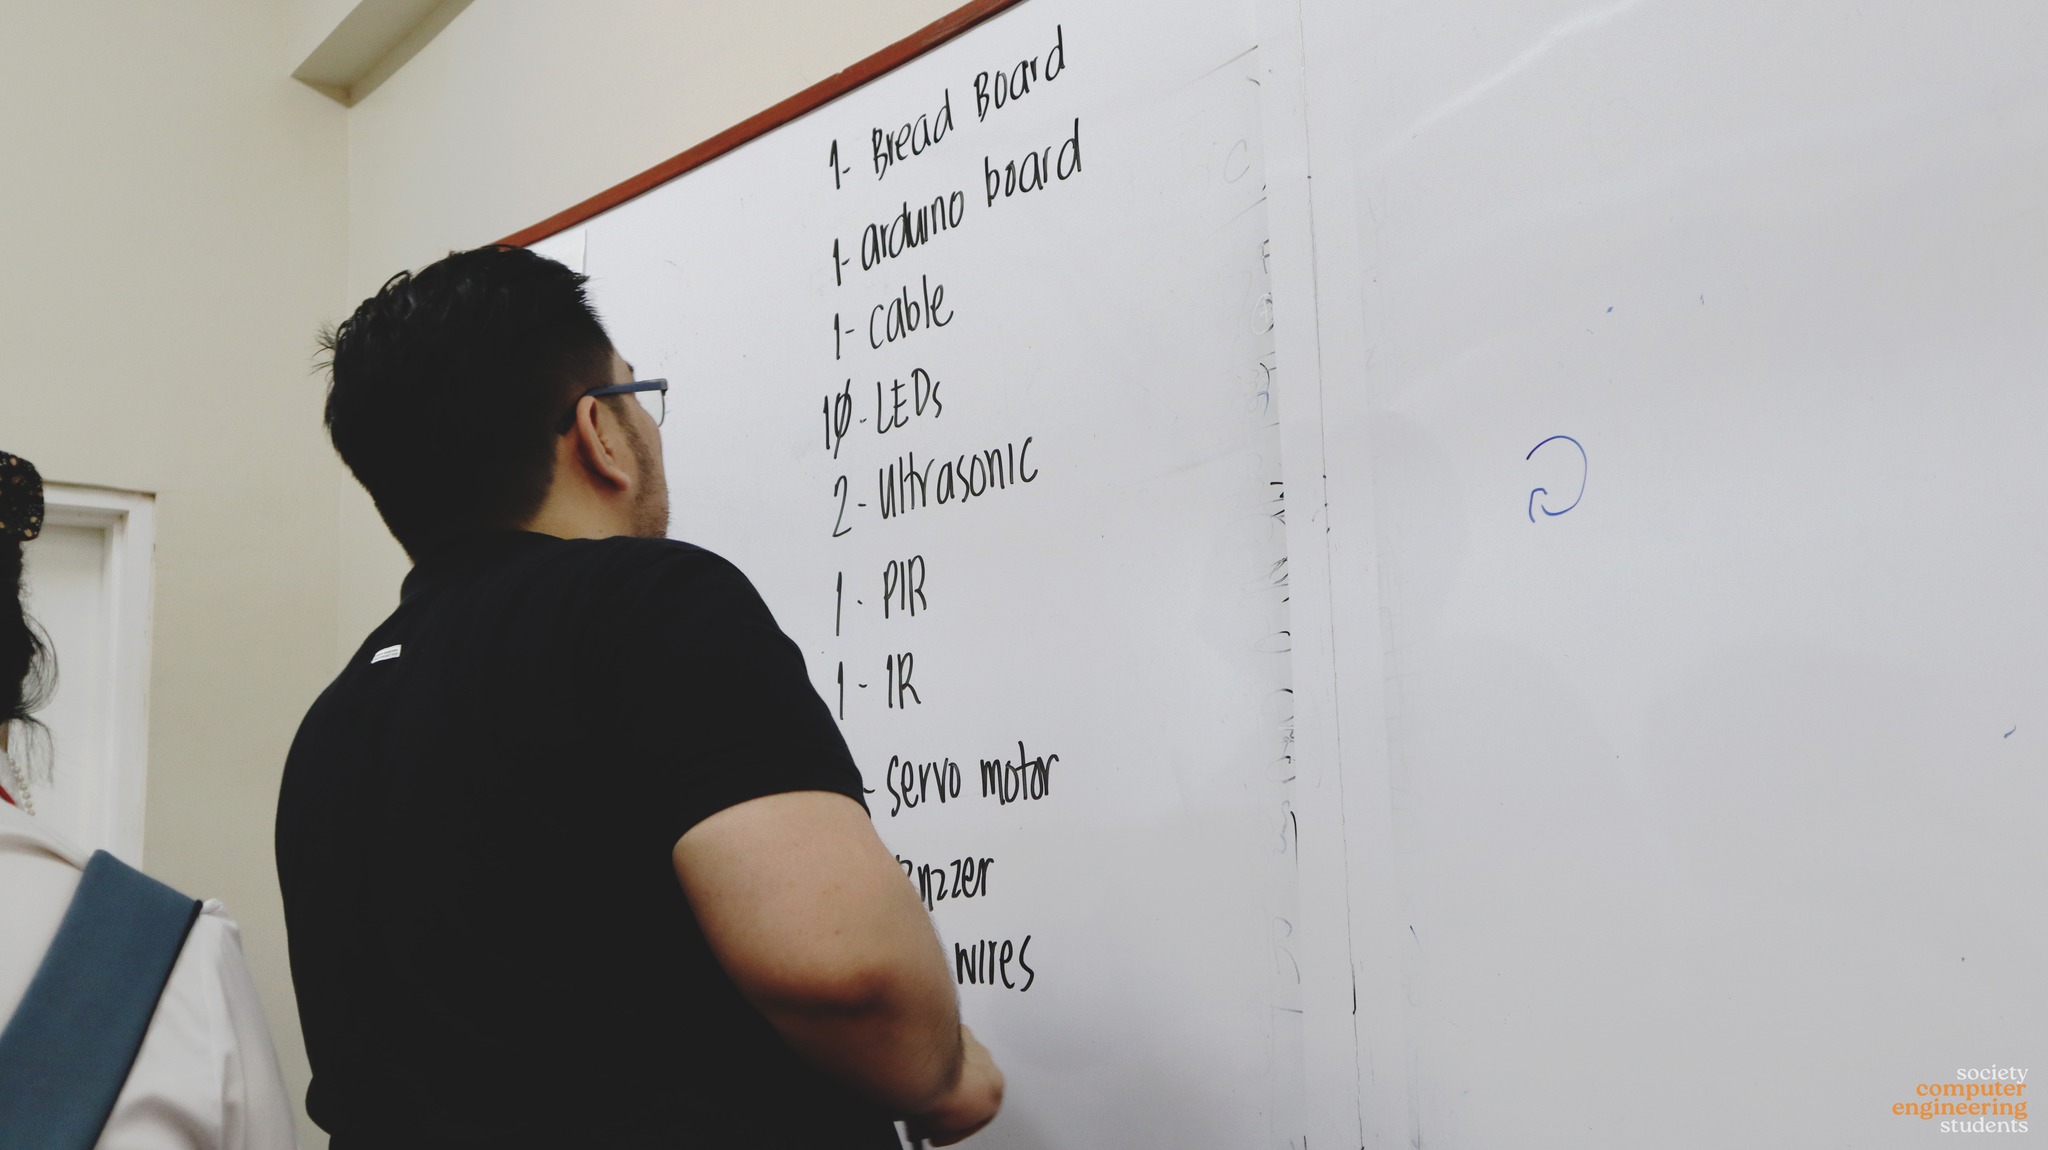 1- Bread Board
1- arduino board
1- cable
10 - LEDs
2 - Ultrasonic
1 - PIR
1 - IR
- servo motor
wires
society
computer
engineering
students